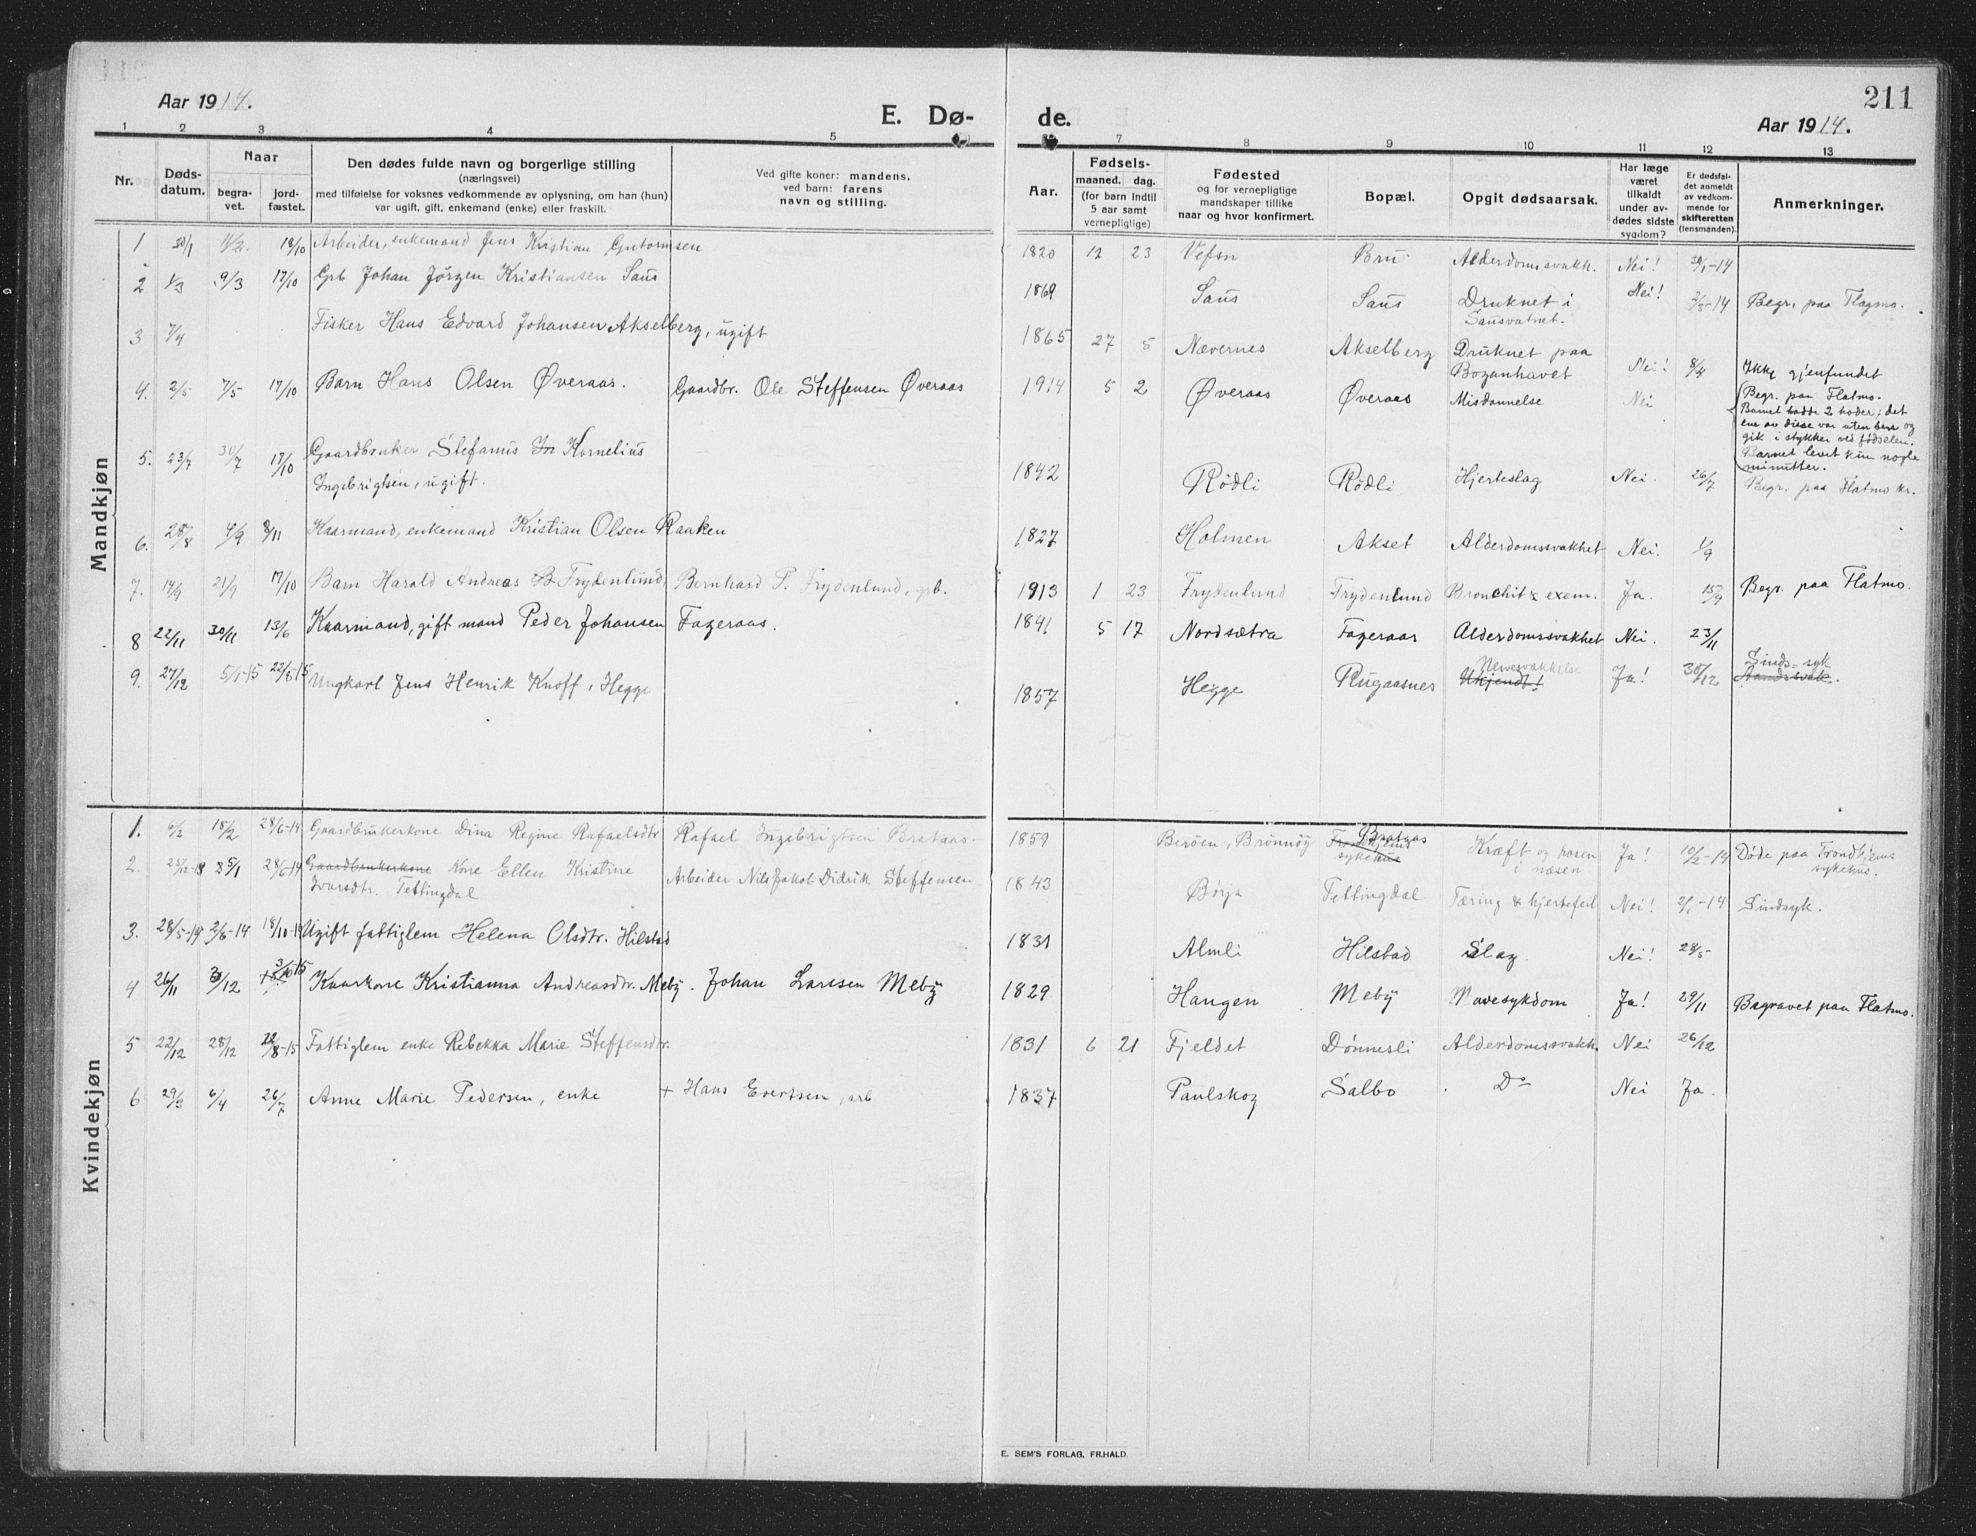 211
Aar 1914.
E. Dø-
de.
Aar 1914.
1 2 3 4 5 7 8 9 10 11 12 13
Nr.
Døds-
datum.
Naar
begra-
vet.
jord-
fæstet.
Den dødes fulde navn og borgerlige stilling
(næringsvei)
med tilføielse for voksnes vedkommende av oplysning, om han (hun)
var ugift, gift, enkemand (enke) eller fraskilt.
Ved gifte koner: mandens,
ved barn: farens
navn og stilling.
Aar.
Fødsels-
maaned. dag.
(for barn indtil
5 aar samt
vernepligtige)
Fødested
og for vernepligtige
mandskaper tillike
naar og hvor konfirmert.
Bopæl.
Opgit dødsaarsak.
Har læge
været
tilkaldt
under av-
dødes sidste
sygdom?
Er dødsfal-
det anmeldt
av vedkom-
mende for
skifteretten
(lensmanden).
Anmerkninger.
Mandkjøn
1 30/1 11/2. 18/10 Arbeider, enkemand Jens Kristian Gutormsen 1820 12 23 Vefsn Bru Alderdomsvakh. Nei! 30/1-14
2 1/3 9/3 17/10 Grb Johan Jørgen Kristiansen Saus 1869 Saus Saus Druknet i Nei! 2/3-14 Begr. paa Flagmo.
Sausvatnet.
3 7/4 Fisker Hans Edvard Johansen Akselberg, ugift 1865 27 5 Nævernes Akselberg Druknet paa Nei! 8/4 Ikke gjenfundet
4. 2/5 7/5 17/10 Barn Hans Olsen Øveraas. Gaardbr. Ole Steffensen Øveraas 1914 5 2 Øveraas Øveraas Misdannelse Nei Begr. paa Flatmo.
Barnet hadde 2 hoder; det
ene av disse var uten ben og
gik i stykker ved fødselen.
Barnet levet kun nogle
minutter.
5. 23/7 30/7 17/10 Gaardbruker Stefanus Kornelius
Ingebrigtsen, ugift. 1842 Rødli Rødli Hjerteslag Nei. 26/7 Begr. paa Flatmo kr.
6. 28/8 4/9 8/11 Kaarmand, enkemand Kristian Olsen Ranken 1827 Holmen Akset Alderdomssvakhet Nei. 1/9
7. 14/9 21/9 17/10 Barn Harald Andreas B Frydenlund, Bernhard P. Frydenlund, grb. 1913 1 23 Frydenlund Frydenlund Bronchit & exem. Ja. 15/9 Begr. paa Flatmo.
8 22/11 30/11 13/6 Kaarmand, gift mand Peder Johansen Fageraas. 1841 5 17 Nordsætra Fageraas Alderdomssvakhet Nei. 23/11
9. 27/12 5/1-15 22/8-15 Ungkarl Jens Henrik Knoff, Hegge 1857 Hegge Rugaasnes Nervesvakkelse
Ukjendt! Ja! 30/12 Sinds-syk
Aandssvak.
Kvindekjøn
1. 6/2 18/2 28/6-14 Gaardbrukerkone Dina Regine Rafaelsdtr Rafael Ingebrigtsen Brataas. 1859 Berøen, Brønnøy Brataas
Trondhjems
sykehus Kræft og rosen
i næsen Ja! 10/2-14 Døde paa Trondhjems
sykehus.
2. 25/12-13 5/1 28/6-14 Gaardbrukerkone Kone Ellen Kristine
Ivarsdtr. Tettingdal Arbeider Nils Jakob Didrik Steffensen 1843 Børja Tettingdal Tæring & hjertefeil Nei! 2/1-14 Sindsyk.
3. 28/5-14 2/6-14 18/10-14 Ugift fattiglem Helena Olsdtr. Hilstad 1831 Almli Hilstad Slag Nei! 28/5
4 26/11 3/12 3/10-15 Kaarkone Kristianna Andreasdtr. Meby. Johan Larssen Meby 1829 Haugen Meby Mavesykdom Ja! 29/11 Begravet paa Flatmo.
5 22/12 28/12 22/8-15 Fattiglem enke Rebekka Marie Steffensdtr. 1831 6 21 Fjeldet Dønnesli Alderdomssvakh. Nei 26/12
6 29/3 6/4 26/7 Anne Marie Pedersen, enke + Hans Evertsen, arb 1837 Paulskog Salbo Do Nei Ja.
E. SEM'S FORLAG, FR.HALD.